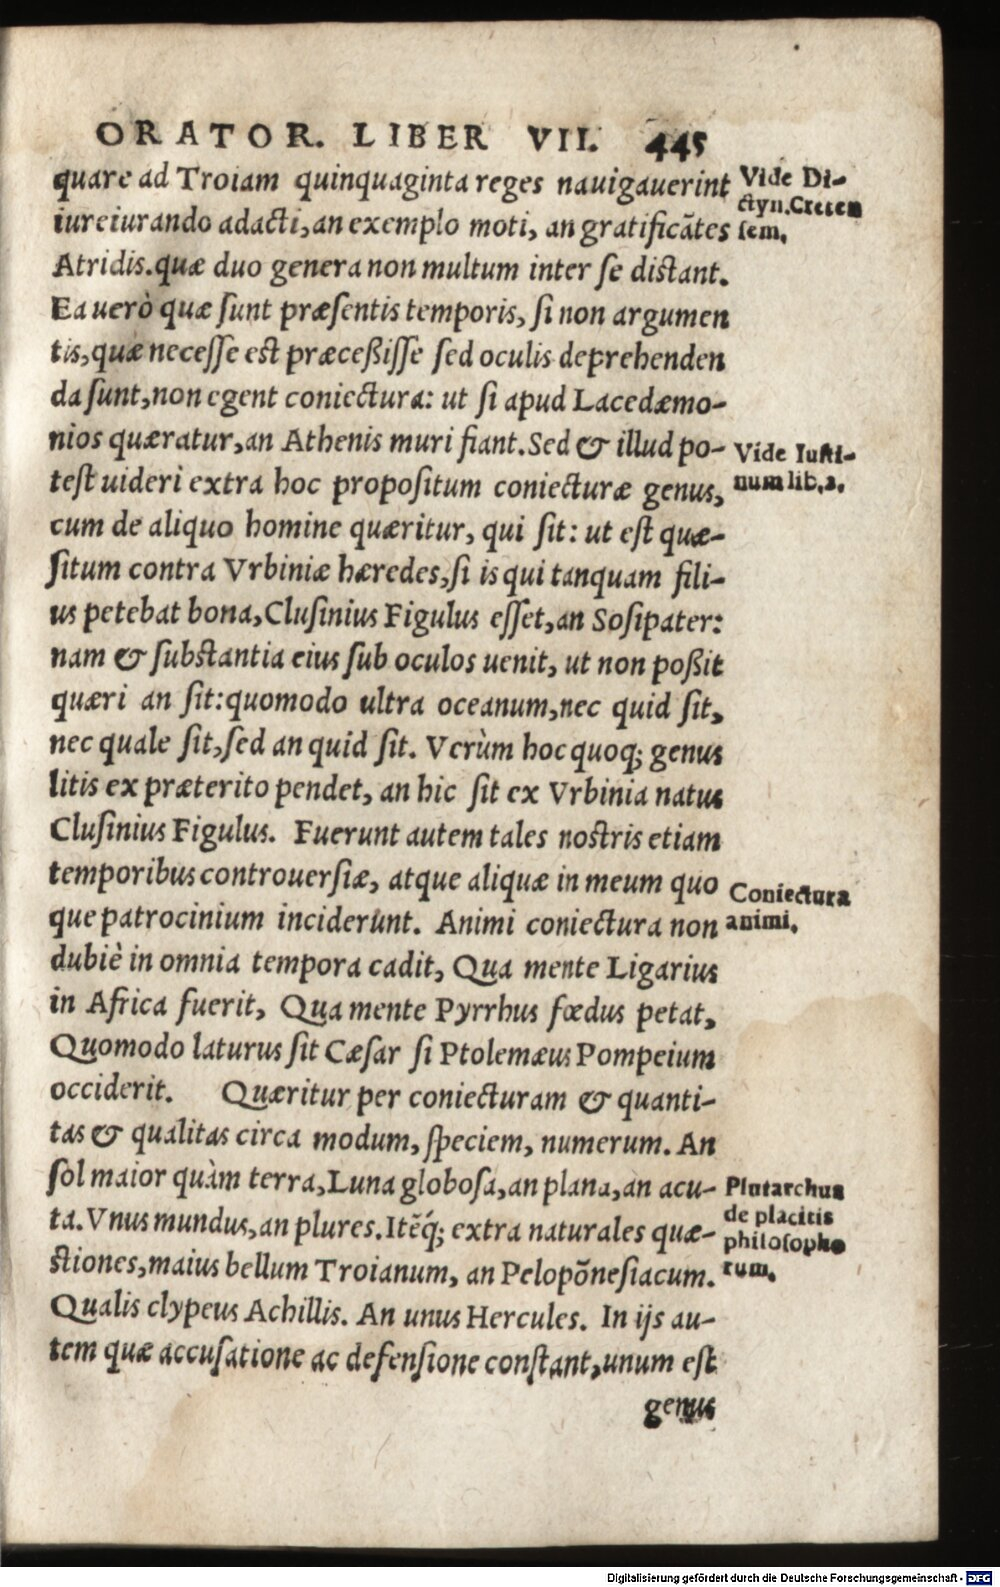 ORATOR. LIBER VII. 445
quare ad Troiam quinquaginta reges nauigauerint
iureiurando adacti, an exemplo moti, an gratificātes
Atridis. quæ duo genera non multum inter se distant.
Ea uerò quæ sunt præsentis temporis, si non argumen
tis, quæ necesse est præceßisse sed oculis deprehenden
da sunt, non egent coniectura: ut si apud Lacedæmo-
nios quæratur, an Athenis muri fiant. Sed & illud po-
test uideri extra hoc propositum coniecturæ genus,
cum de aliquo homine quæritur, qui sit: ut est quæ-
situm contra Vrbiniæ hæredes, si is qui tanquam fili-
us petebat bona, Clusinius Figulus esset, an Sosipater:
nam & substantia eius sub oculos uenit, ut non poßit
quæri an sit: quomodo ultra oceanum, nec quid sit,
nec quale sit, sed an quid sit. Verùm hoc quoq; genus
litis ex præterito pendet, an hic sit ex Vrbinia natus
Clusinius Figulus. Fuerunt autem tales nostris etiam
temporibus controuersiæ, atque aliquæ in meum quo
que patrocinium inciderunt. Animi coniectura non
dubiè in omnia tempora cadit, Qua mente Ligarius
in Africa fuerit, Qua mente Pyrrhus fœdus petat,
Quomodo laturus sit Cæsar si Ptolemæus Pompeium
occiderit. Quæritur per coniecturam & quanti-
tas & qualitas circa modum, speciem, numerum. An
sol maior quàm terra, Luna globosa, an plana, an acu-
ta. Vnus mundus, an plures. Itēq́; extra naturales quæ-
stiones, maius bellum Troianum, an Pelopōnesiacum.
Qualis clypeus Achillis. An unus Hercules. In ijs au-
tem quæ accusatione ac defensione constant, unum est
genus
Vide Di-
ctyn. Creten
sem.
Vide Iusti-
num lib. 2.
Coniectura
animi.
Plutarchus
de placitis
philosopho
rum.
Digitalisierung gefördert durch die Deutsche Forschungsgemeinschaft - DFG